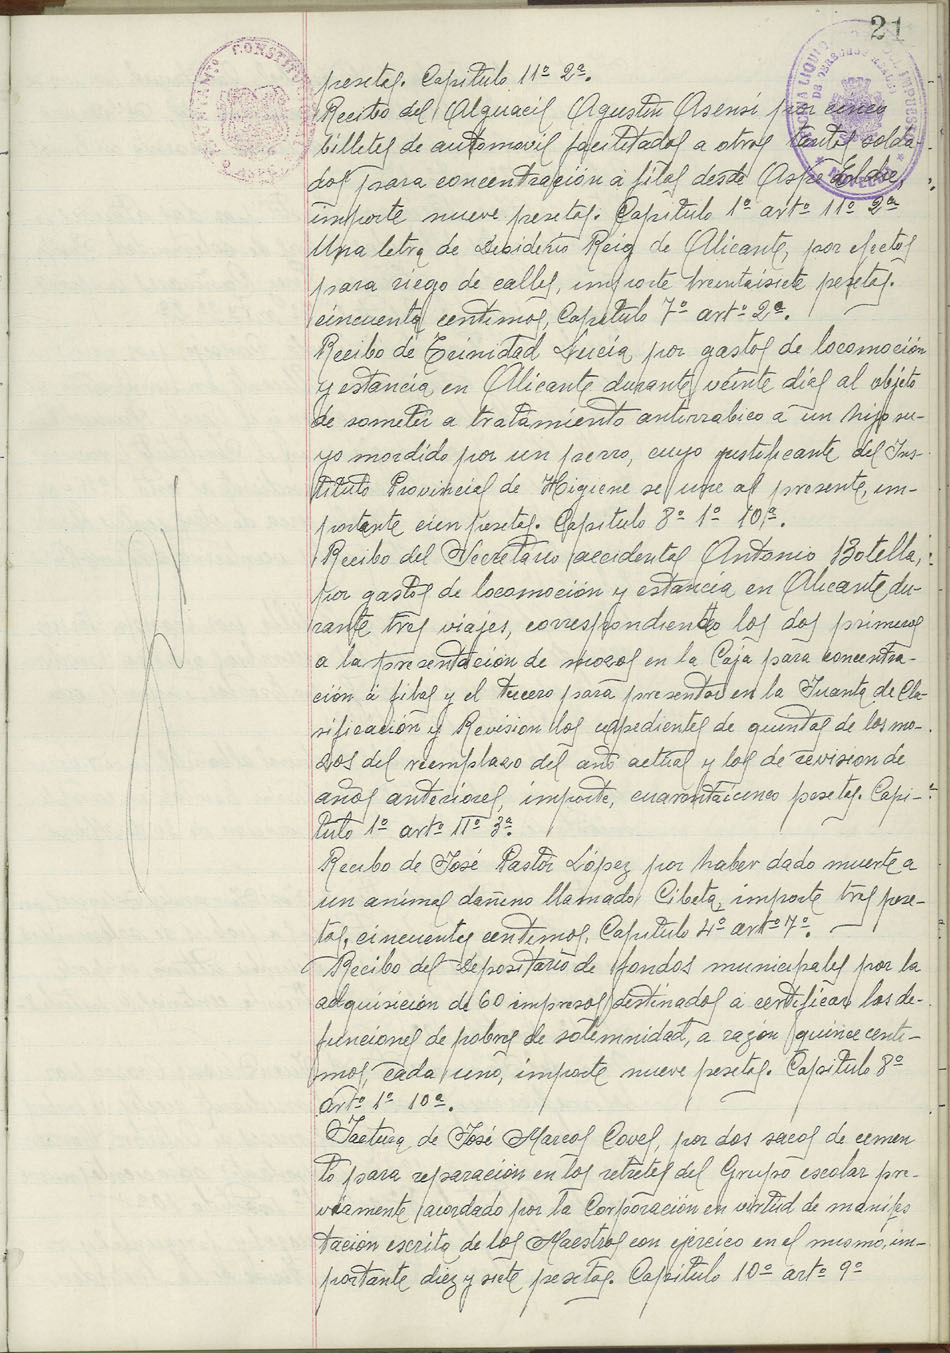 21
pesetas. Capitulo 11º 2ª.
Recibo del Alguacil Agustin Asensi por cinco
billetes de automovil facilitados a otros tantos solda-
dos para concentración a filas desde Aspe Elche,
importe nueve pesetas. Capitulo 1º artº 11º 2ª
Una letra de Desiderio Reig de Alicante, por efectos
para riego de calles, importe treintaisiete pesetas.
cincuenta centimos, Capitulo 7º artº 2ª.
Recibo de Trinidad Lucia por gastos de locomoción
y estancia en Alicante durante veinte dias al objeto
de someter a tratamiento antirrabico a un hijo su-
yo mordido por un perro, cuyo justificante del Ins-
tituto Provincial de Higiene se une al presente, im-
portante cien pesetas. Capitulo 8º 1º 10ª.
Recibo del Secretario accidental Antonio Botella,
por gastos de locomoción y estancia en Alicante du-
rante tres viajes, correspondiendo los dos primeros
a la presentación de mozos en la Caja para concentra-
ción á filas y el tercero para presentar en la Juanta de Cla-
sificación y Revision los expedientes de quintas de los mo-
zos del reemplazo del año actual y los de revision de
años anteriores, importe, cuarentaicinco pesetas. Capi-
tulo 1º artº 11º 3ª.
Recibo de José Pastor López por haber dado muerte a
un animal dañino llamado Cibeta, importe tres pese-
tas, cincuenta centimos, Capitulo 4º artº 7º.
Recibo del Depositario de fondos municipales por la
adquisición de 60 impresos destinados a certificar los de-
funciones de pobres de solemnidad, a razón quince centi-
mos, cada uno, importe nueve pesetas. Capitulo 8º
artº 1º 10ª.
Factura de José Marcos Coves, por dos sacos de cemen
to para reparación en los retretes del Grupo escolar pre-
viamente acordado por la Corporación en virtud de manifes
tación escrita de los Maestros con ejercico en el mismo, im-
portante diez y siete pesetas. Capitulo 10º artº 9º